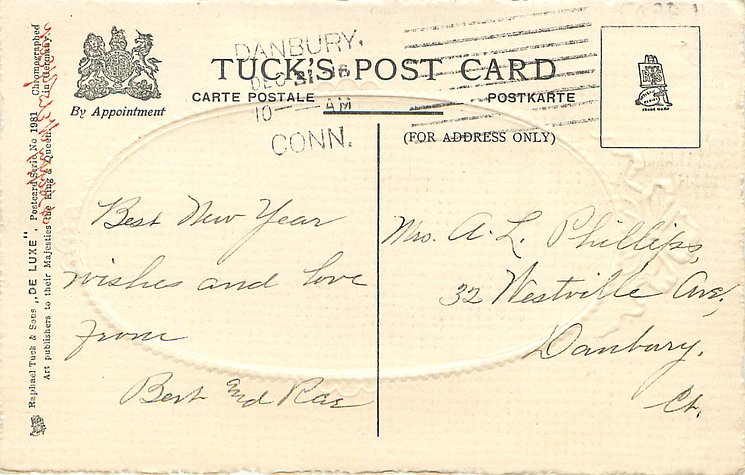 DANBURY,
DEC 31 16
10 — AM
CONN.
TUCK'S POST CARD
CARTE POSTALE
POSTKARTE
(FOR ADDRESS ONLY)
By Appointment
Raphael Tuck & Sons „DE LUXE" Postcard Serie No 1981 Chromographed
Art publishers to their Majesties the King & Queen in Germany
Best New Year
wishes and love
from
Bert and Rae
Mrs. A. L. Phillips,
32 Westville Ave,
Danbury,
Ct.
TRADE MARK